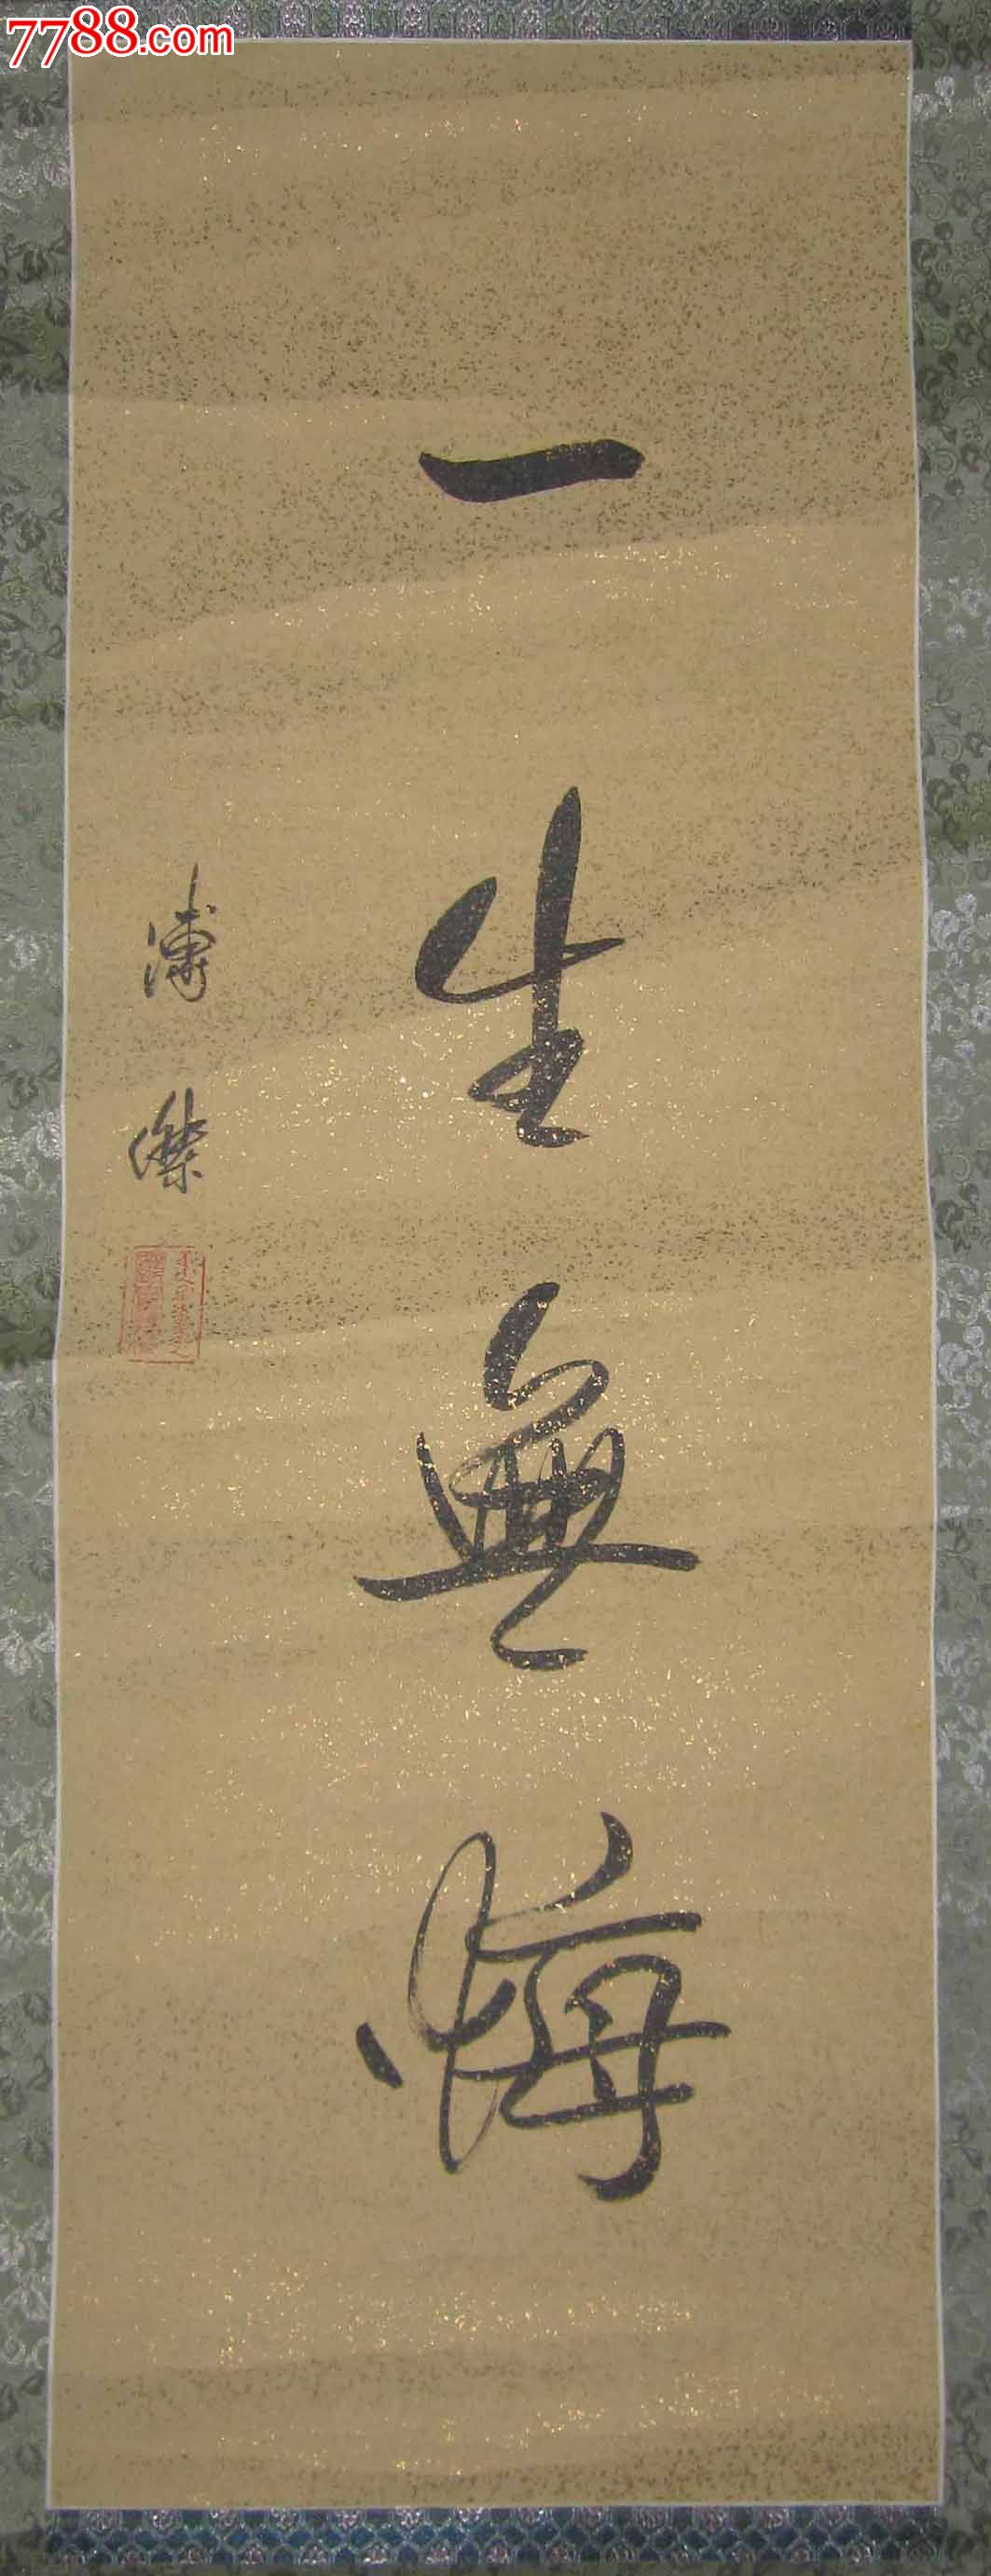 7788.com
一生無悔
溥傑